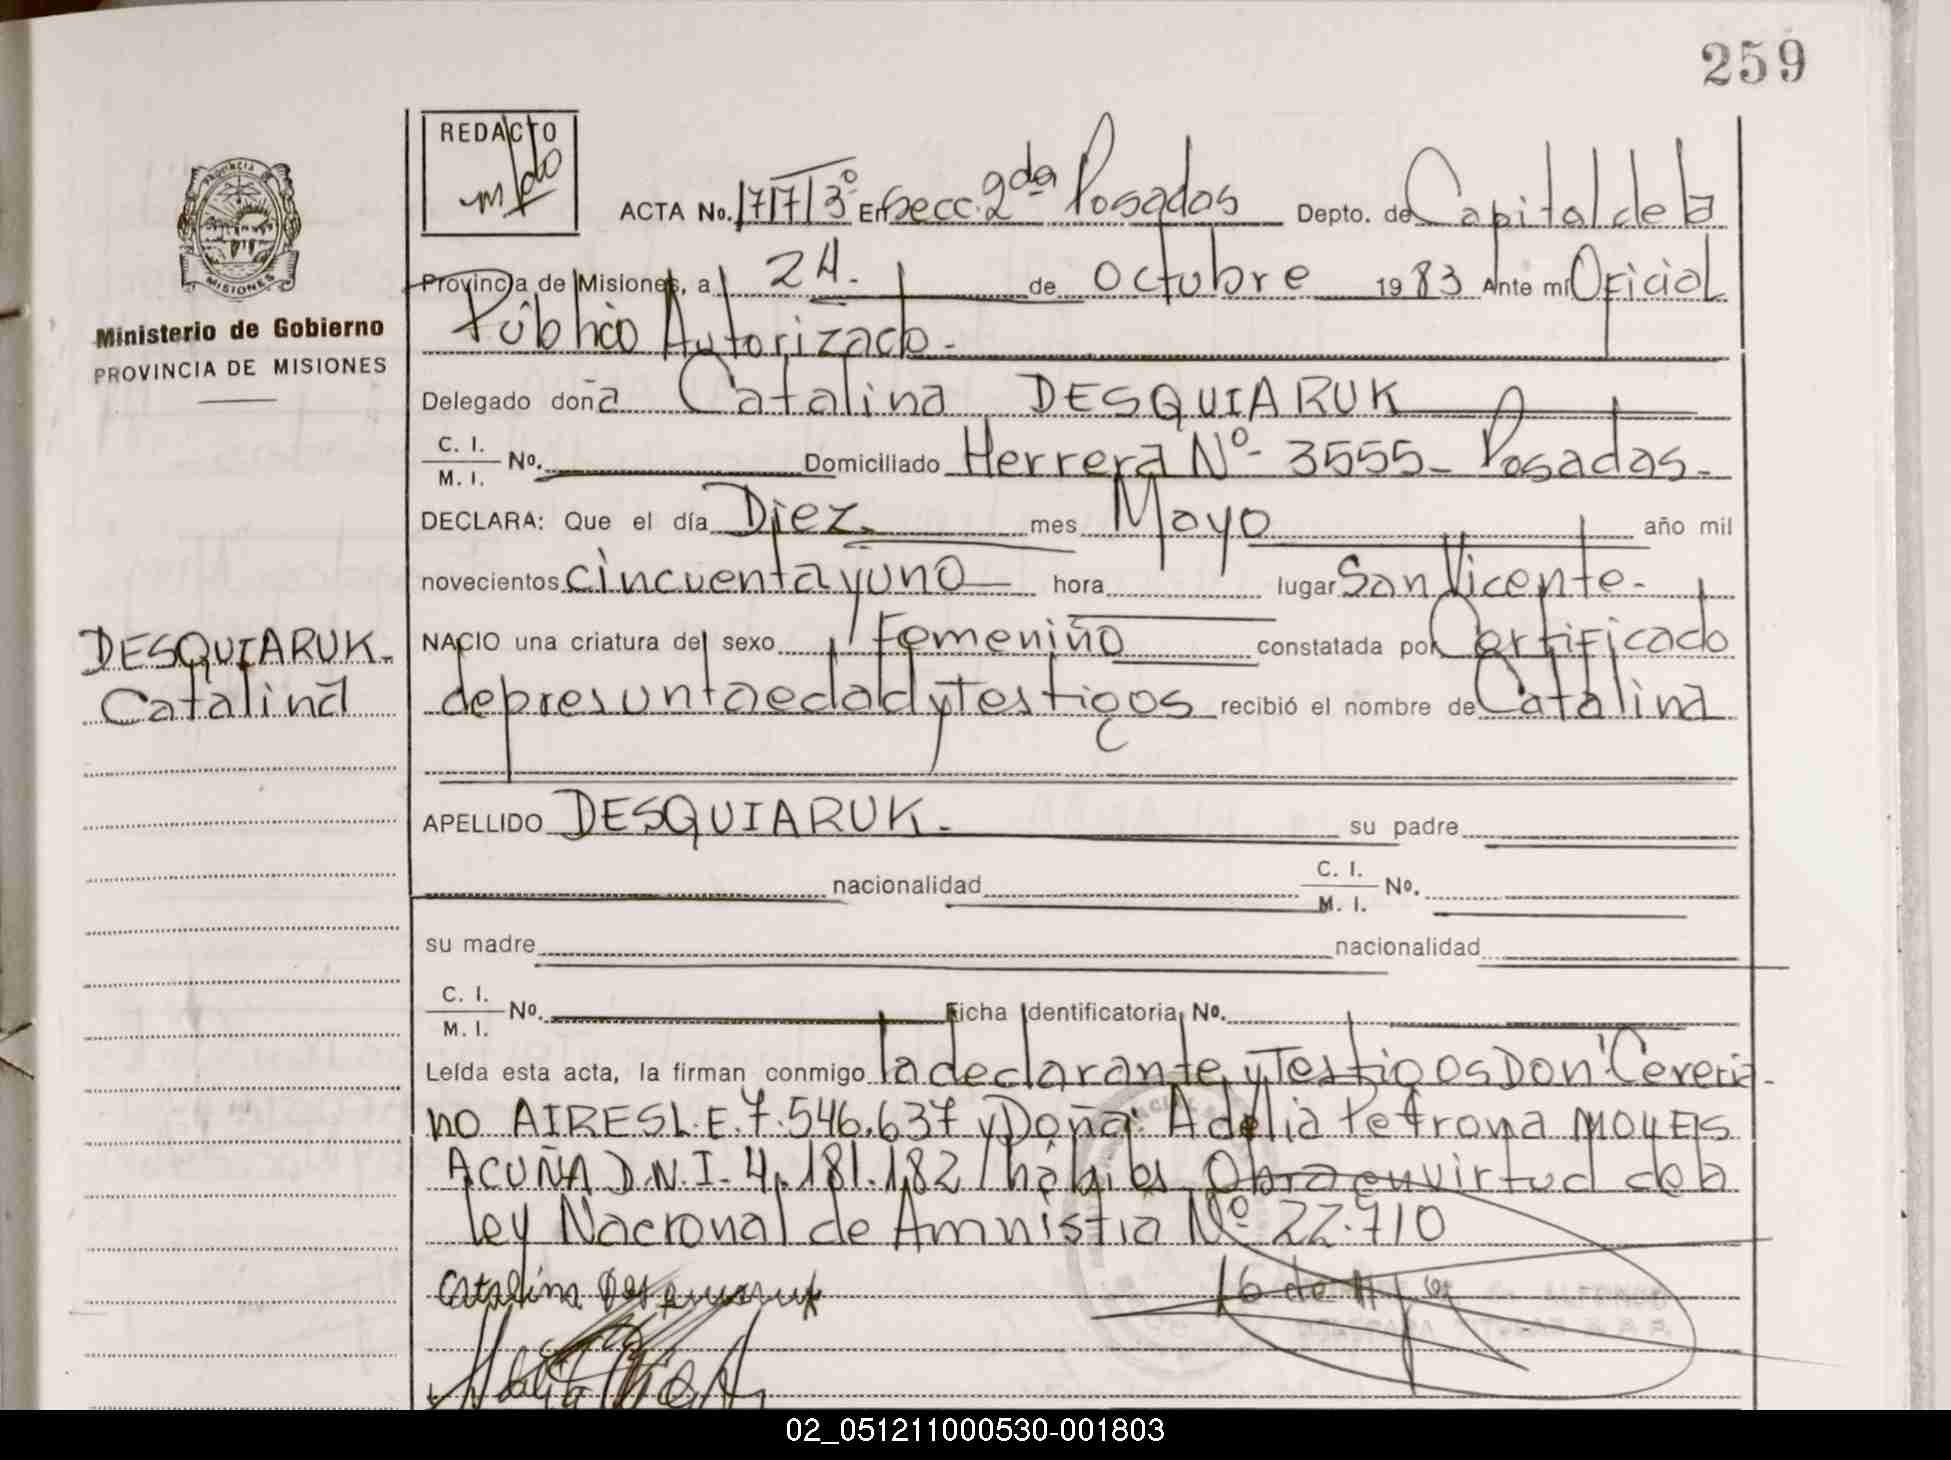 259
REDACTO
ACTA No. 1717/3º En Secc. 2da Posadas Depto. de Capital de la
Provincia de Misiones, a 24. de octubre 1983 Ante mi Oficial
Público Autorizado.-
Ministerio de Gobierno
PROVINCIA DE MISIONES
Delegado doña Catalina DESQUIARUK
C. I.
M. I. No. Domiciliado Herrera Nº- 3555- Posadas.-
DECLARA: Que el día Diez. mes Mayo año mil
novecientos cincuenta y uno hora lugar San Vicente.-
NACIO una criatura del sexo Femenino constatada por Certificado
de presunta edad y Testigos recibió el nombre de Catalina
DESQUIARUK.
Catalina
APELLIDO DESQUIARUK.- su padre
nacionalidad C. I.
M. I. No.
su madre nacionalidad
C. I.
M. I. No. Ficha Identificatoria No.
Leída esta acta, la firman conmigo la declarante y Testigos Don Cereria-
no AIRES L.E. 7.546.637 y Doña: Adelia Petrona
ACUÑA D.N.I- 4.181.182/hábiles Obra en virtud de la
ley Nacional de Amnistia Nº 22.710
Catalina Desquiaruk
MISIONES
02_051211000530-001803